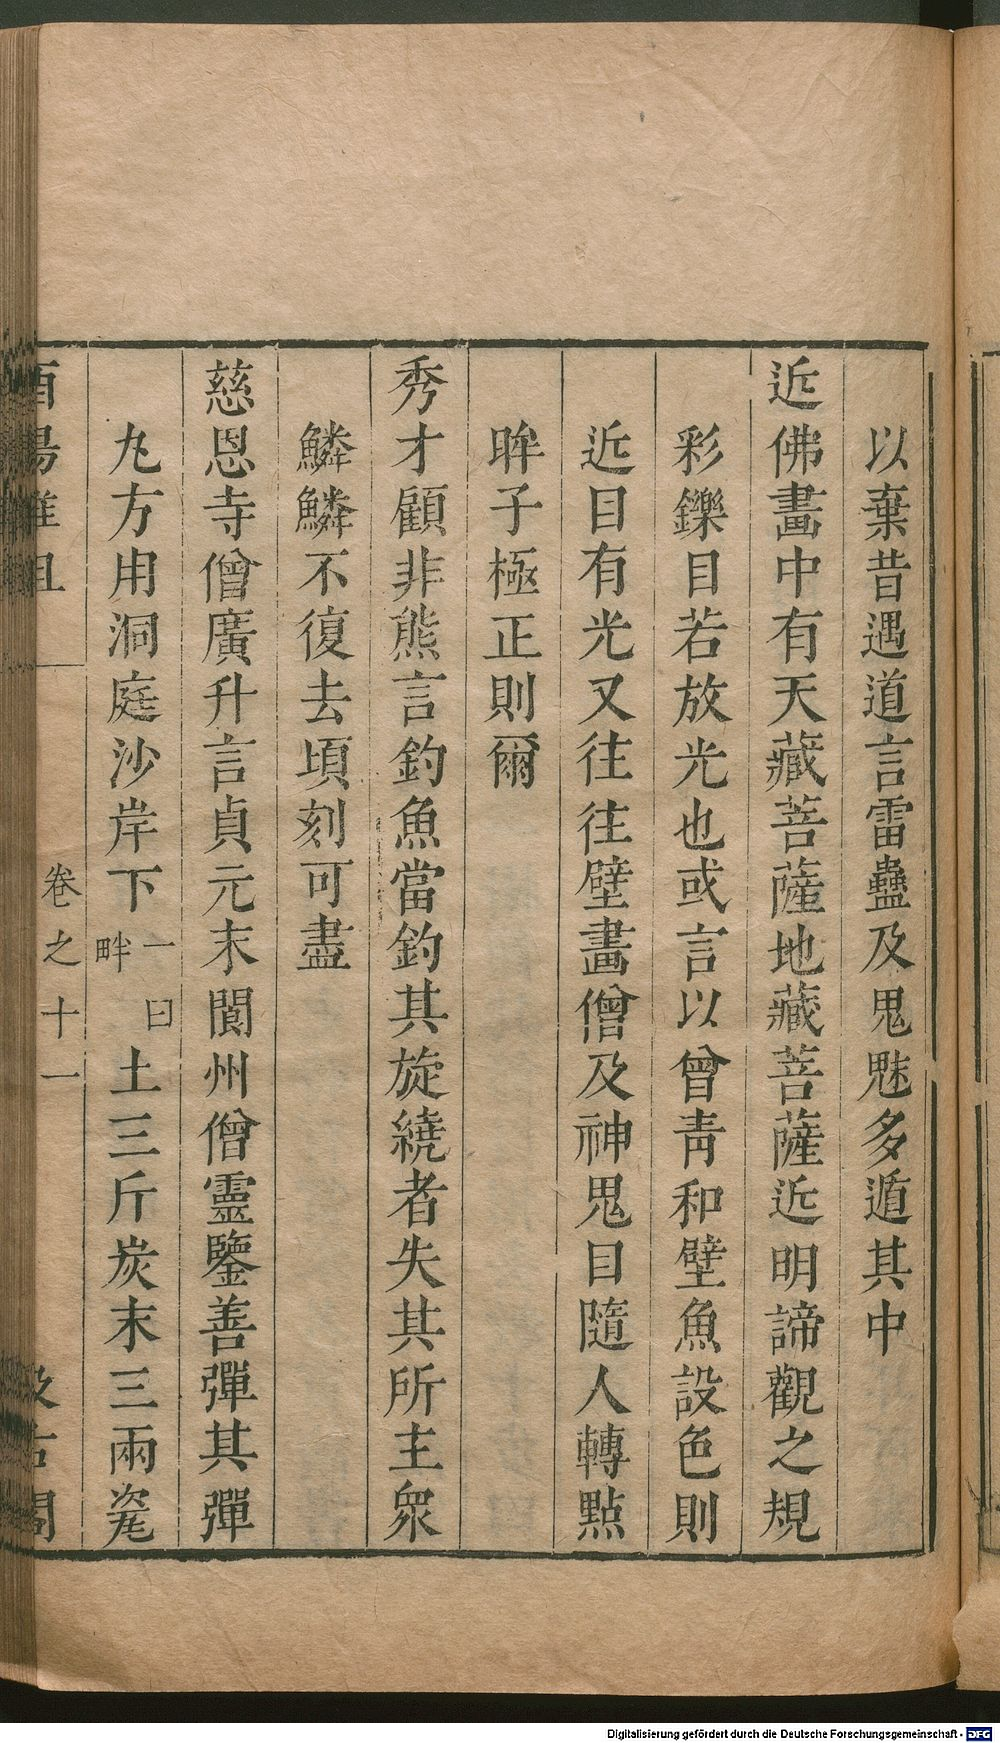 以棄昔遇道言雷蠱及鬼魅多遁其中
近佛畫中有天藏菩薩地藏菩薩近明諦觀之規
彩鑠目若放光也或言以曾青和壁魚設色則
近目有光又往往壁畫僧及神鬼目隨人轉點
眸子極正則爾
秀才顧非熊言釣魚當釣其旋繞者失其所主衆
鱗鱗不復去頃刻可盡
慈恩寺僧廣升言貞元末閬州僧靈鑒善彈其彈
丸方用洞庭沙岸下一曰畔土三斤炭末三兩瓷
酉陽雜俎 卷之十一 汲古閣
Digitalisierung gefördert durch die Deutsche Forschungsgemeinschaft - DFG